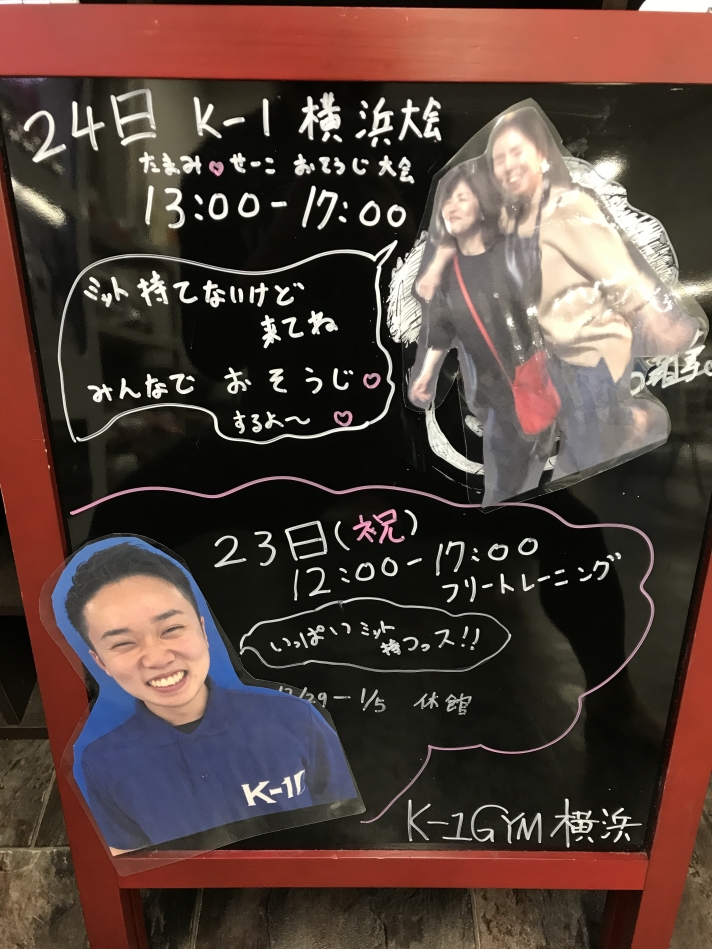 24日 K-1 横浜大会
たまみ♡せーこ おそうじ大会
13:00-17:00
ミット持てないけど
来てね
みんなで おそうじ♡
するよ〜♡
23日(祝)
12:00-17:00
フリートレーニング
いっぱいミット
持つっス!!
12/29-1/5 休館
K-1
K-1GYM横浜